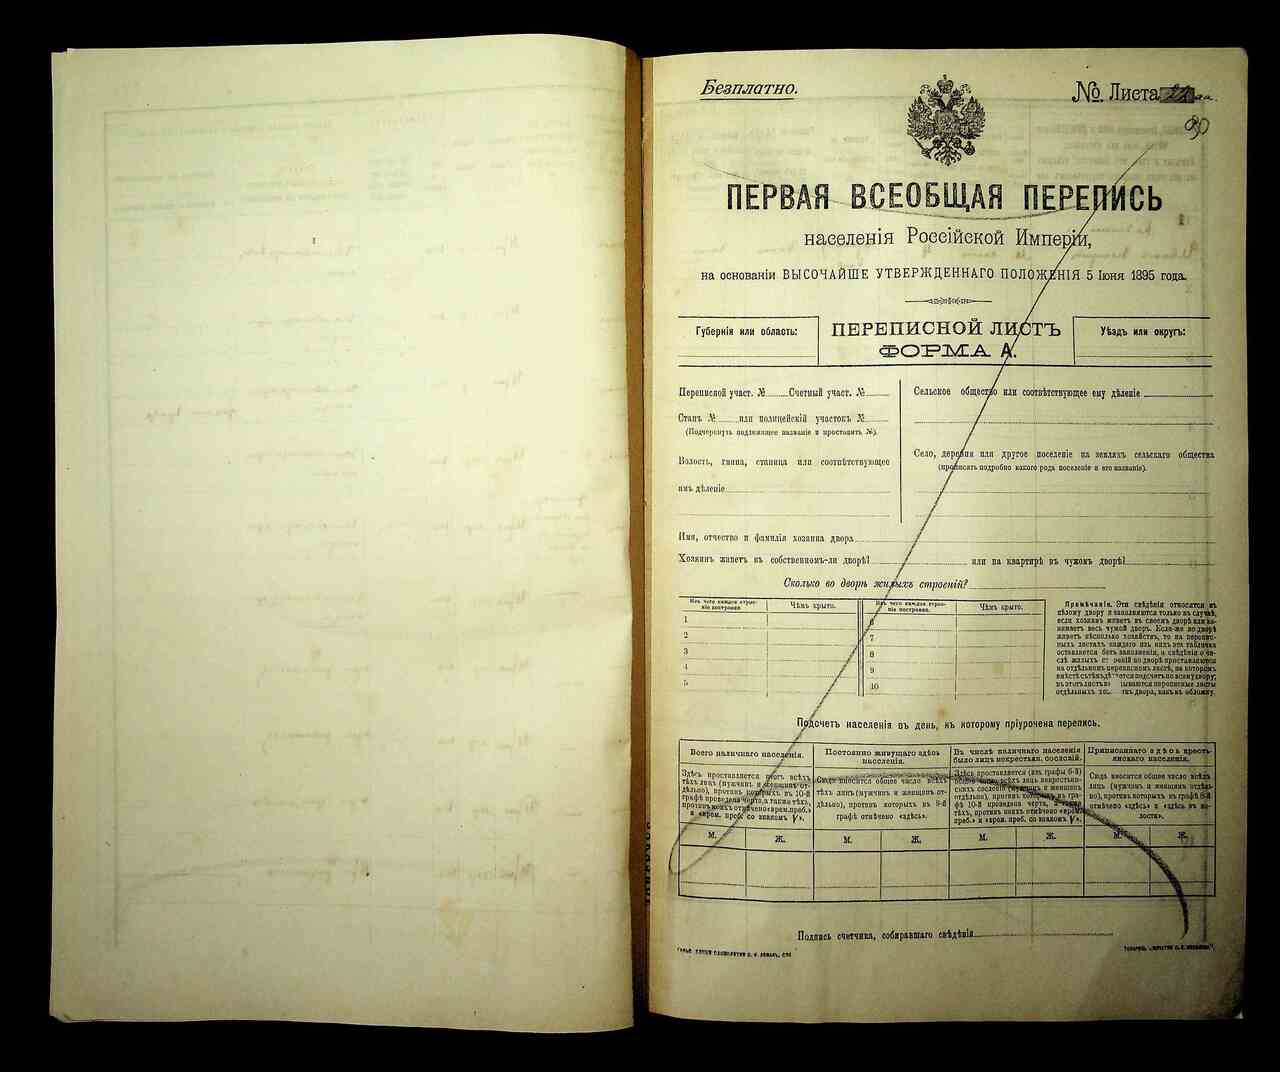 Безплатно.
№ Листа
90
ПЕРВАЯ ВСЕОБЩАЯ ПЕРЕПИСЬ
населенія Россійской Имперіи,
на основаніи ВЫСОЧАЙШЕ УТВЕРЖДЕННАГО ПОЛОЖЕНІЯ 5 Іюня 1895 года.
Губернія или область:
ПЕРЕПИСНОЙ ЛИСТЪ
ФОРМА А.
Уѣздъ или округъ:
Переписной участ. № Счетный участ. №
Станъ № или полицейскій участокъ №
(Подчеркнуть подлежащее названіе и проставить №).
Волость, гмина, станица или соотвѣтствующее
имъ дѣленіе
Сельское общество или соотвѣтствующее ему дѣленіе
Село, деревня или другое поселеніе на земляхъ сельскаго общества
(прописать подробно какого рода поселеніе и его названіе).
Имя, отчество и фамилія хозяина двора
Хозяинъ живетъ въ собственномъ-ли дворѣ? или на квартирѣ въ чужомъ дворѣ?
Сколько во дворѣ жилыхъ строеній?
Изъ чего каждое строе-
ніе построено.
Чѣмъ крыто.
1
2
3
4
5
Изъ чего каждое строе-
ніе построено.
Чѣмъ крыто.
6
7
8
9
10
Примѣчанія. Эти свѣдѣнія относятся къ
цѣлому двору и заполняются только въ случаѣ,
если хозяинъ живетъ въ своемъ дворѣ или за-
нимаетъ весь чужой дворъ. Если-же во дворѣ
живетъ нѣсколько хозяйствъ, то на перепис-
ныхъ листахъ каждаго изъ нихъ эта табличка
оставляется безъ заполненія, а свѣдѣнія о чи-
слѣ жилыхъ строеній во дворѣ проставляются
на отдѣльномъ переписномъ листѣ, на которомъ
Подсчетъ населенія въ день, къ которому пріурочена перепись.
Всего наличнаго населенія.
Здѣсь проставляется итогъ всѣхъ
тѣхъ лицъ (мужчинъ и женщинъ от-
дѣльно), противъ которыхъ въ 10-й
графѣ проведена черта, а также тѣхъ,
противъ коихъ отмѣчено «врем. преб.»
и «врем. преб. со знакомъ V».
М. Ж.
Постоянно живущаго здѣсь
населенія.
Сюда вносится общее число всѣхъ
тѣхъ лицъ (мужчинъ и женщинъ от-
дѣльно), противъ которыхъ въ 9-й
графѣ отмѣчено «здѣсь».
М. Ж.
Въ числѣ наличнаго населенія
было лицъ некрестьян. сословій.
Здѣсь проставляется (изъ графы 6-й)
общее число всѣхъ лицъ некрестьян-
скихъ сословій (мужчинъ и женщинъ
отдѣльно), противъ которыхъ въ гра-
фѣ 10-й проведена черта, а также
тѣхъ, противъ коихъ отмѣчено «врем.
преб.» и «врем. преб. со знакомъ V».
М. Ж.
Приписаннаго здѣсь кресть-
янскаго населенія.
Сюда вносится общее число всѣхъ
лицъ (мужчинъ и женщинъ отдѣль-
но), противъ которыхъ въ 8-й графѣ
отмѣчено «здѣсь» и «здѣсь въ во-
лости».
М. Ж.
Подпись счетчика, собиравшаго свѣдѣнія